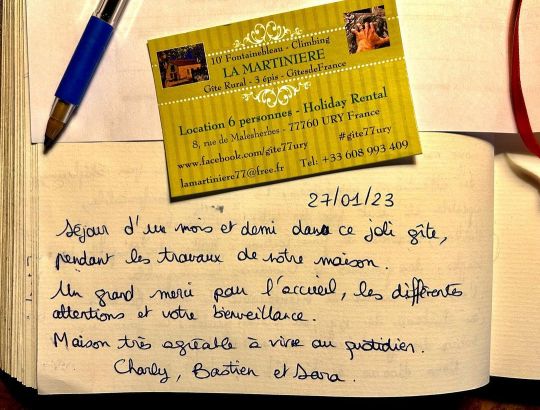 10' Fontainebleau - Climbing
LA MARTINIERE
Gîte Rural - 3 épis - GîtesdeFrance
Location 6 personnes - Holiday Rental
8, rue de Malesherbes - 77760 URY France
www.facebook.com/gite77ury #gite77ury
lamartiniere77@free.fr Tel: +33 608 993 409
27/01/23
Séjour d'un mois et demi dans ce joli gîte,
pendant les travaux de notre maison.
Un grand merci pour l'accueil, les différentes
attentions et votre bienveillance.
Maison très agréable à vivre au quotidien.
Charly, Bastien et Sara.